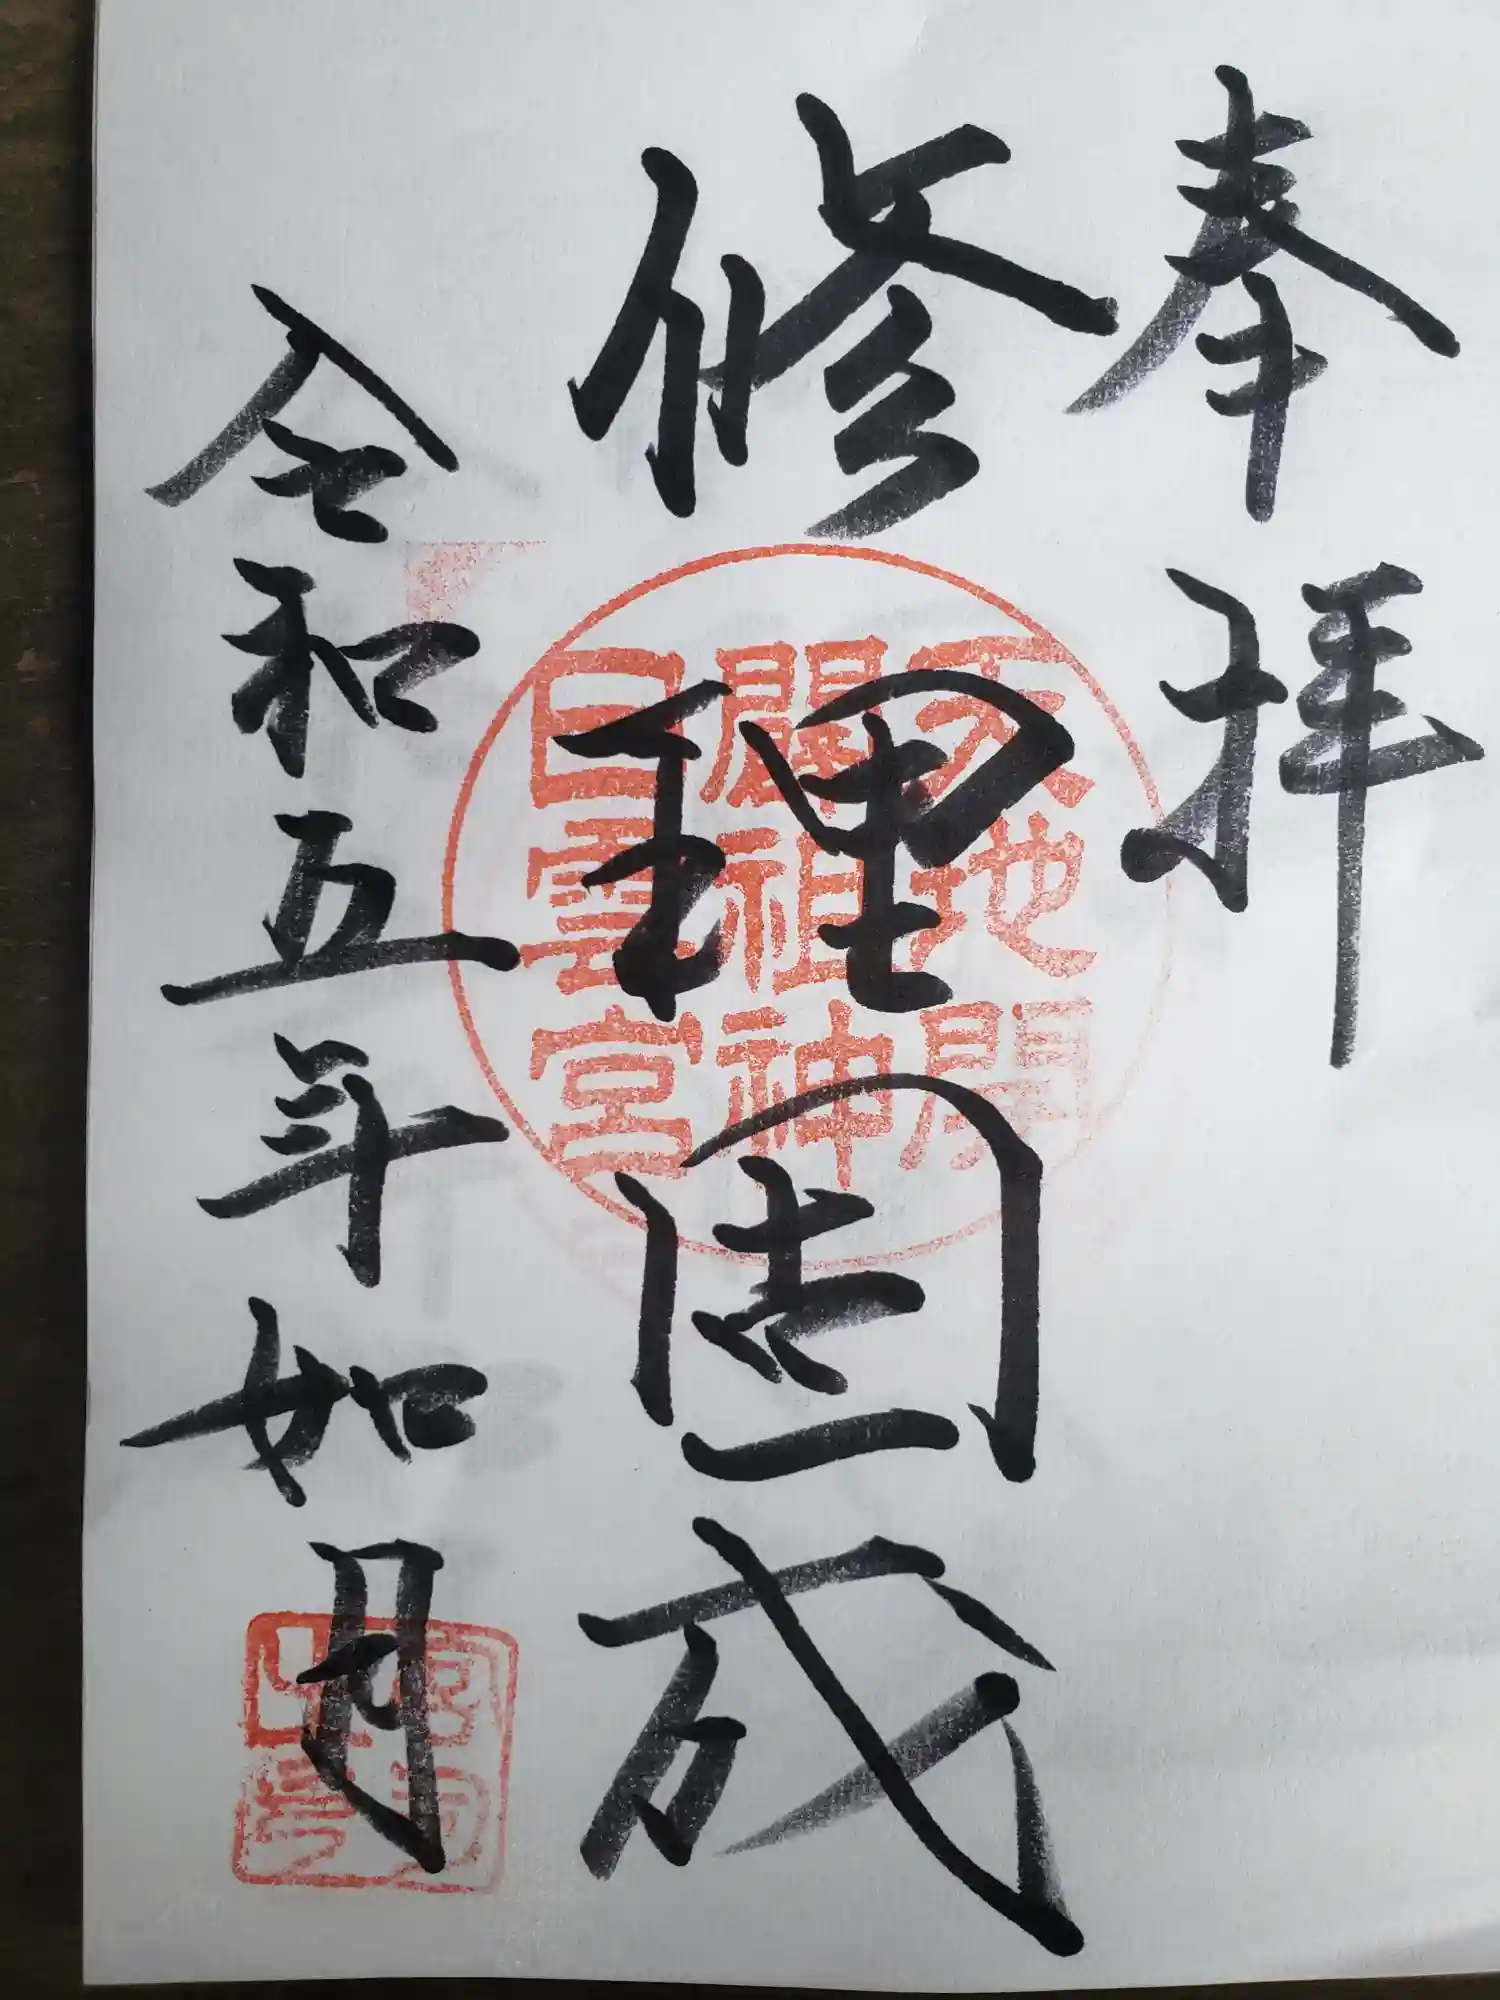 奉拝
修理固成
天地開
闢祖神
日雲宮
令和五年如月